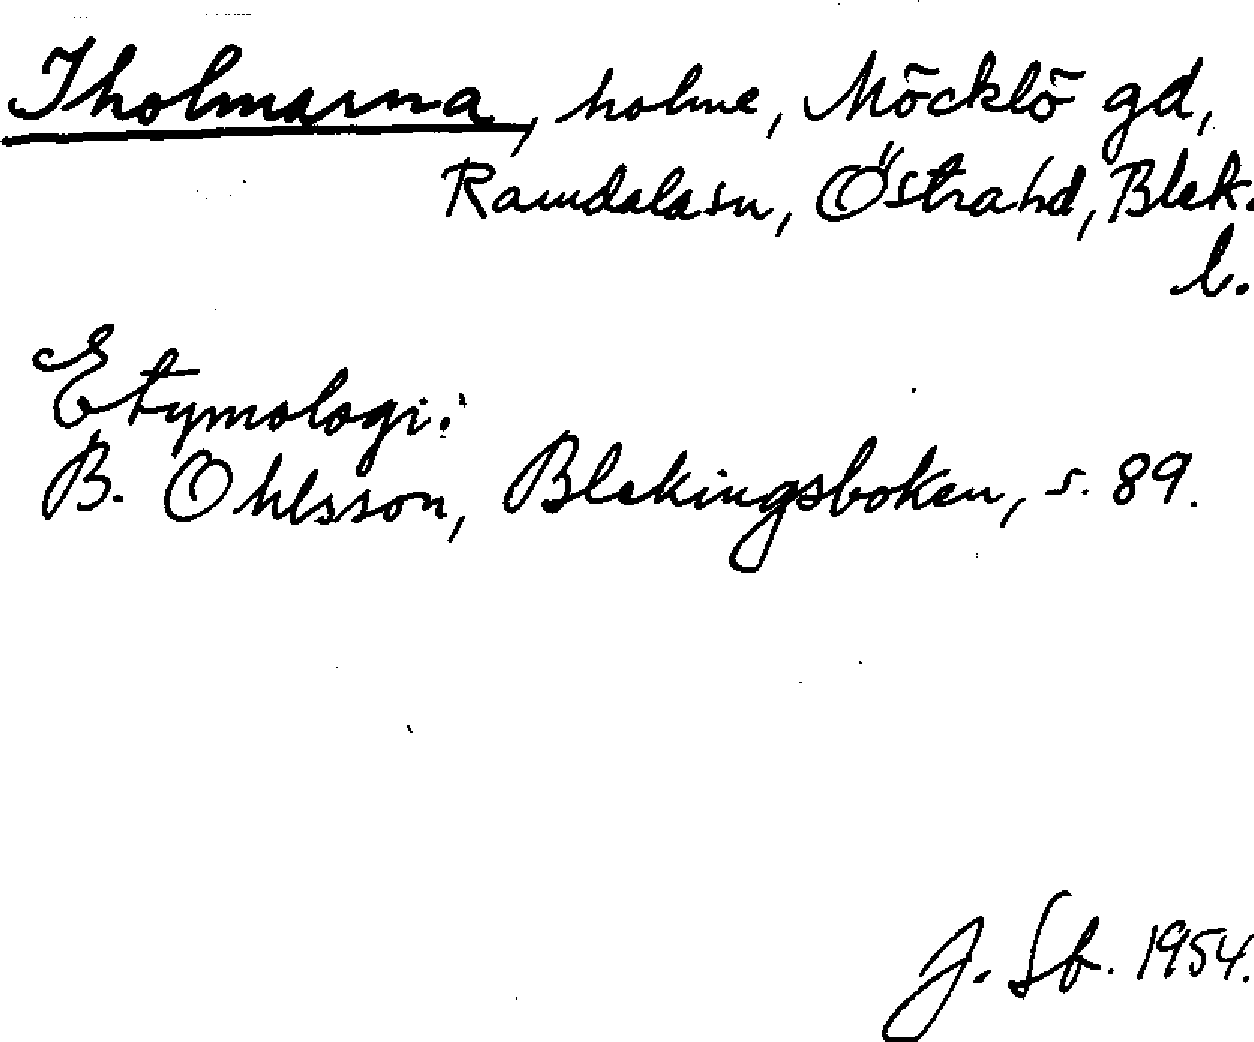 Iholmarna, holme, Möcklö gd,
Ramdala sn, Östra hd, Blek.
l.
Etymologi:
B. Ohlsson, Blekingsboken, s. 89.
J. Sb. 1954.